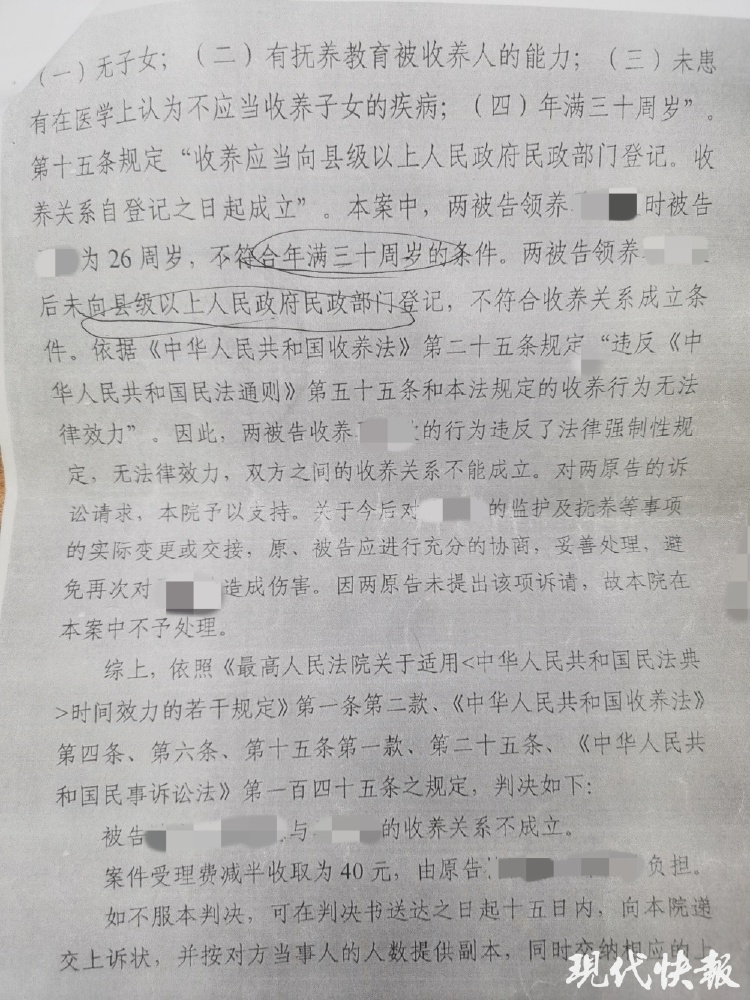 （一）无子女；（二）有抚养教育被收养人的能力；（三）未患
有在医学上认为不应当收养子女的疾病；（四）年满三十周岁”。
第十五条规定“收养应当向县级以上人民政府民政部门登记。收
养关系自登记之日起成立”。本案中，两被告领养 时被告
为26周岁，不符合年满三十周岁的条件。两被告领养
后未向县级以上人民政府民政部门登记，不符合收养关系成立条
件。依据《中华人民共和国收养法》第二十五条规定“违反《中
华人民共和国民法通则》第五十五条和本法规定的收养行为无法
律效力”。因此，两被告收养 的行为违反了法律强制性规
定，无法律效力，双方之间的收养关系不能成立。对两原告的诉
讼请求，本院予以支持。关于今后对 的监护及抚养等事项
的实际变更或交接，原、被告应进行充分的协商，妥善处理，避
免再次对 造成伤害。因两原告未提出该项诉请，故本院在
本案中不予处理。
综上，依照《最高人民法院关于适用<中华人民共和国民法典
>时间效力的若干规定》第一条第二款、《中华人民共和国收养法》
第四条、第六条、第十五条第一款、第二十五条、《中华人民共
和国民事诉讼法》第一百四十五条之规定，判决如下：
被告 与 的收养关系不成立。
案件受理费减半收取为40元，由原告 负担。
如不服本判决，可在判决书送达之日起十五日内，向本院递
交上诉状，并按对方当事人的人数提供副本，同时交纳相应的上
现代快报